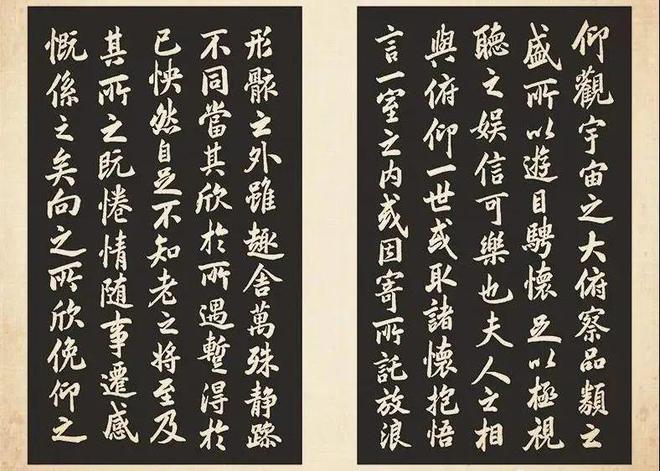 仰觀宇宙之大俯察品類之
盛所以遊目騁懷足以極視
聽之娱信可樂也夫人之相
與俯仰一世或取諸懷抱悟
言一室之内或因寄所託放浪
形骸之外雖趣舍萬殊静躁
不同當其欣於所遇暫得於
己怏然自足不知老之將至及
其所之既惓情随事遷感
慨係之矣向之所欣俛仰之